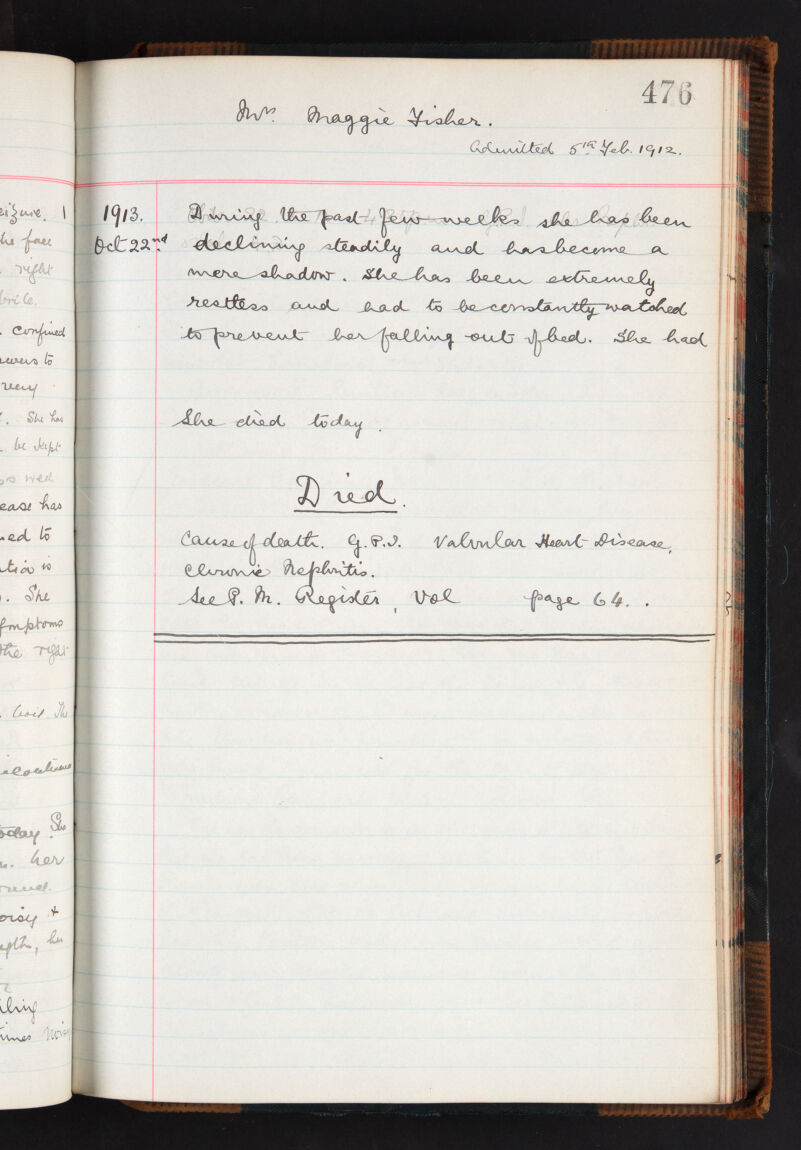 476
Mrs. Maggie Fisher.
Admitted 5th Feb. 1912.
1913.
Oct 22nd
During the past few weeks she has been
declining steadily and has become a
mere shadow. She has been extremely
restless and had to be constantly watched
to prevent her falling out of bed. She had
She died today.
Died.
Cause of death. G.P.I. Valvular Heart Disease,
Chronic Nephritis.
See P. M. Register, Vol page 64.
eizure. I
he face
right
confined
wers to
very
. She has
be kept
ease has
ned to
tia is
. She
ymptoms
the right
The
today. She
her
oisy +
ngth, her
times noisy